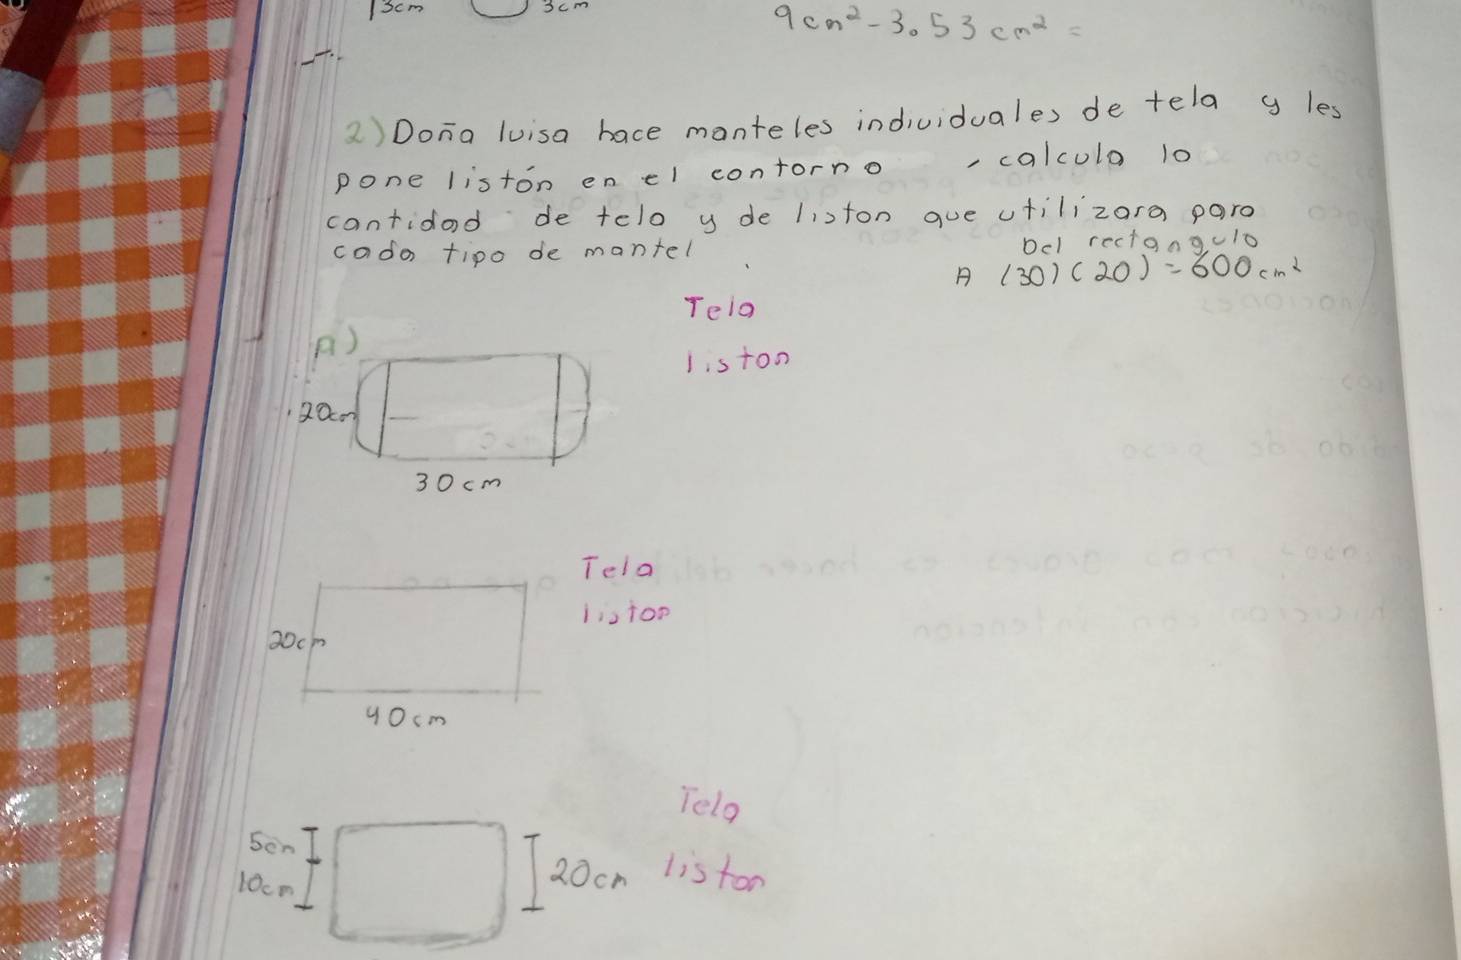 3cm 3cm
9cm² - 3.53 cm² =
2) Doña luisa hace manteles individuales de tela y les
pone listón en el contorno , calcula lo
cantidad de tela y de liston que utilizara para
cada tipo de mantel
Del rectangulo
A (30) (20) = 600 cm²
Tela
liston
A)
20cm
30 cm
Tela
liston
20cm
40cm
Tela
5cm
10cm
20cm
liston